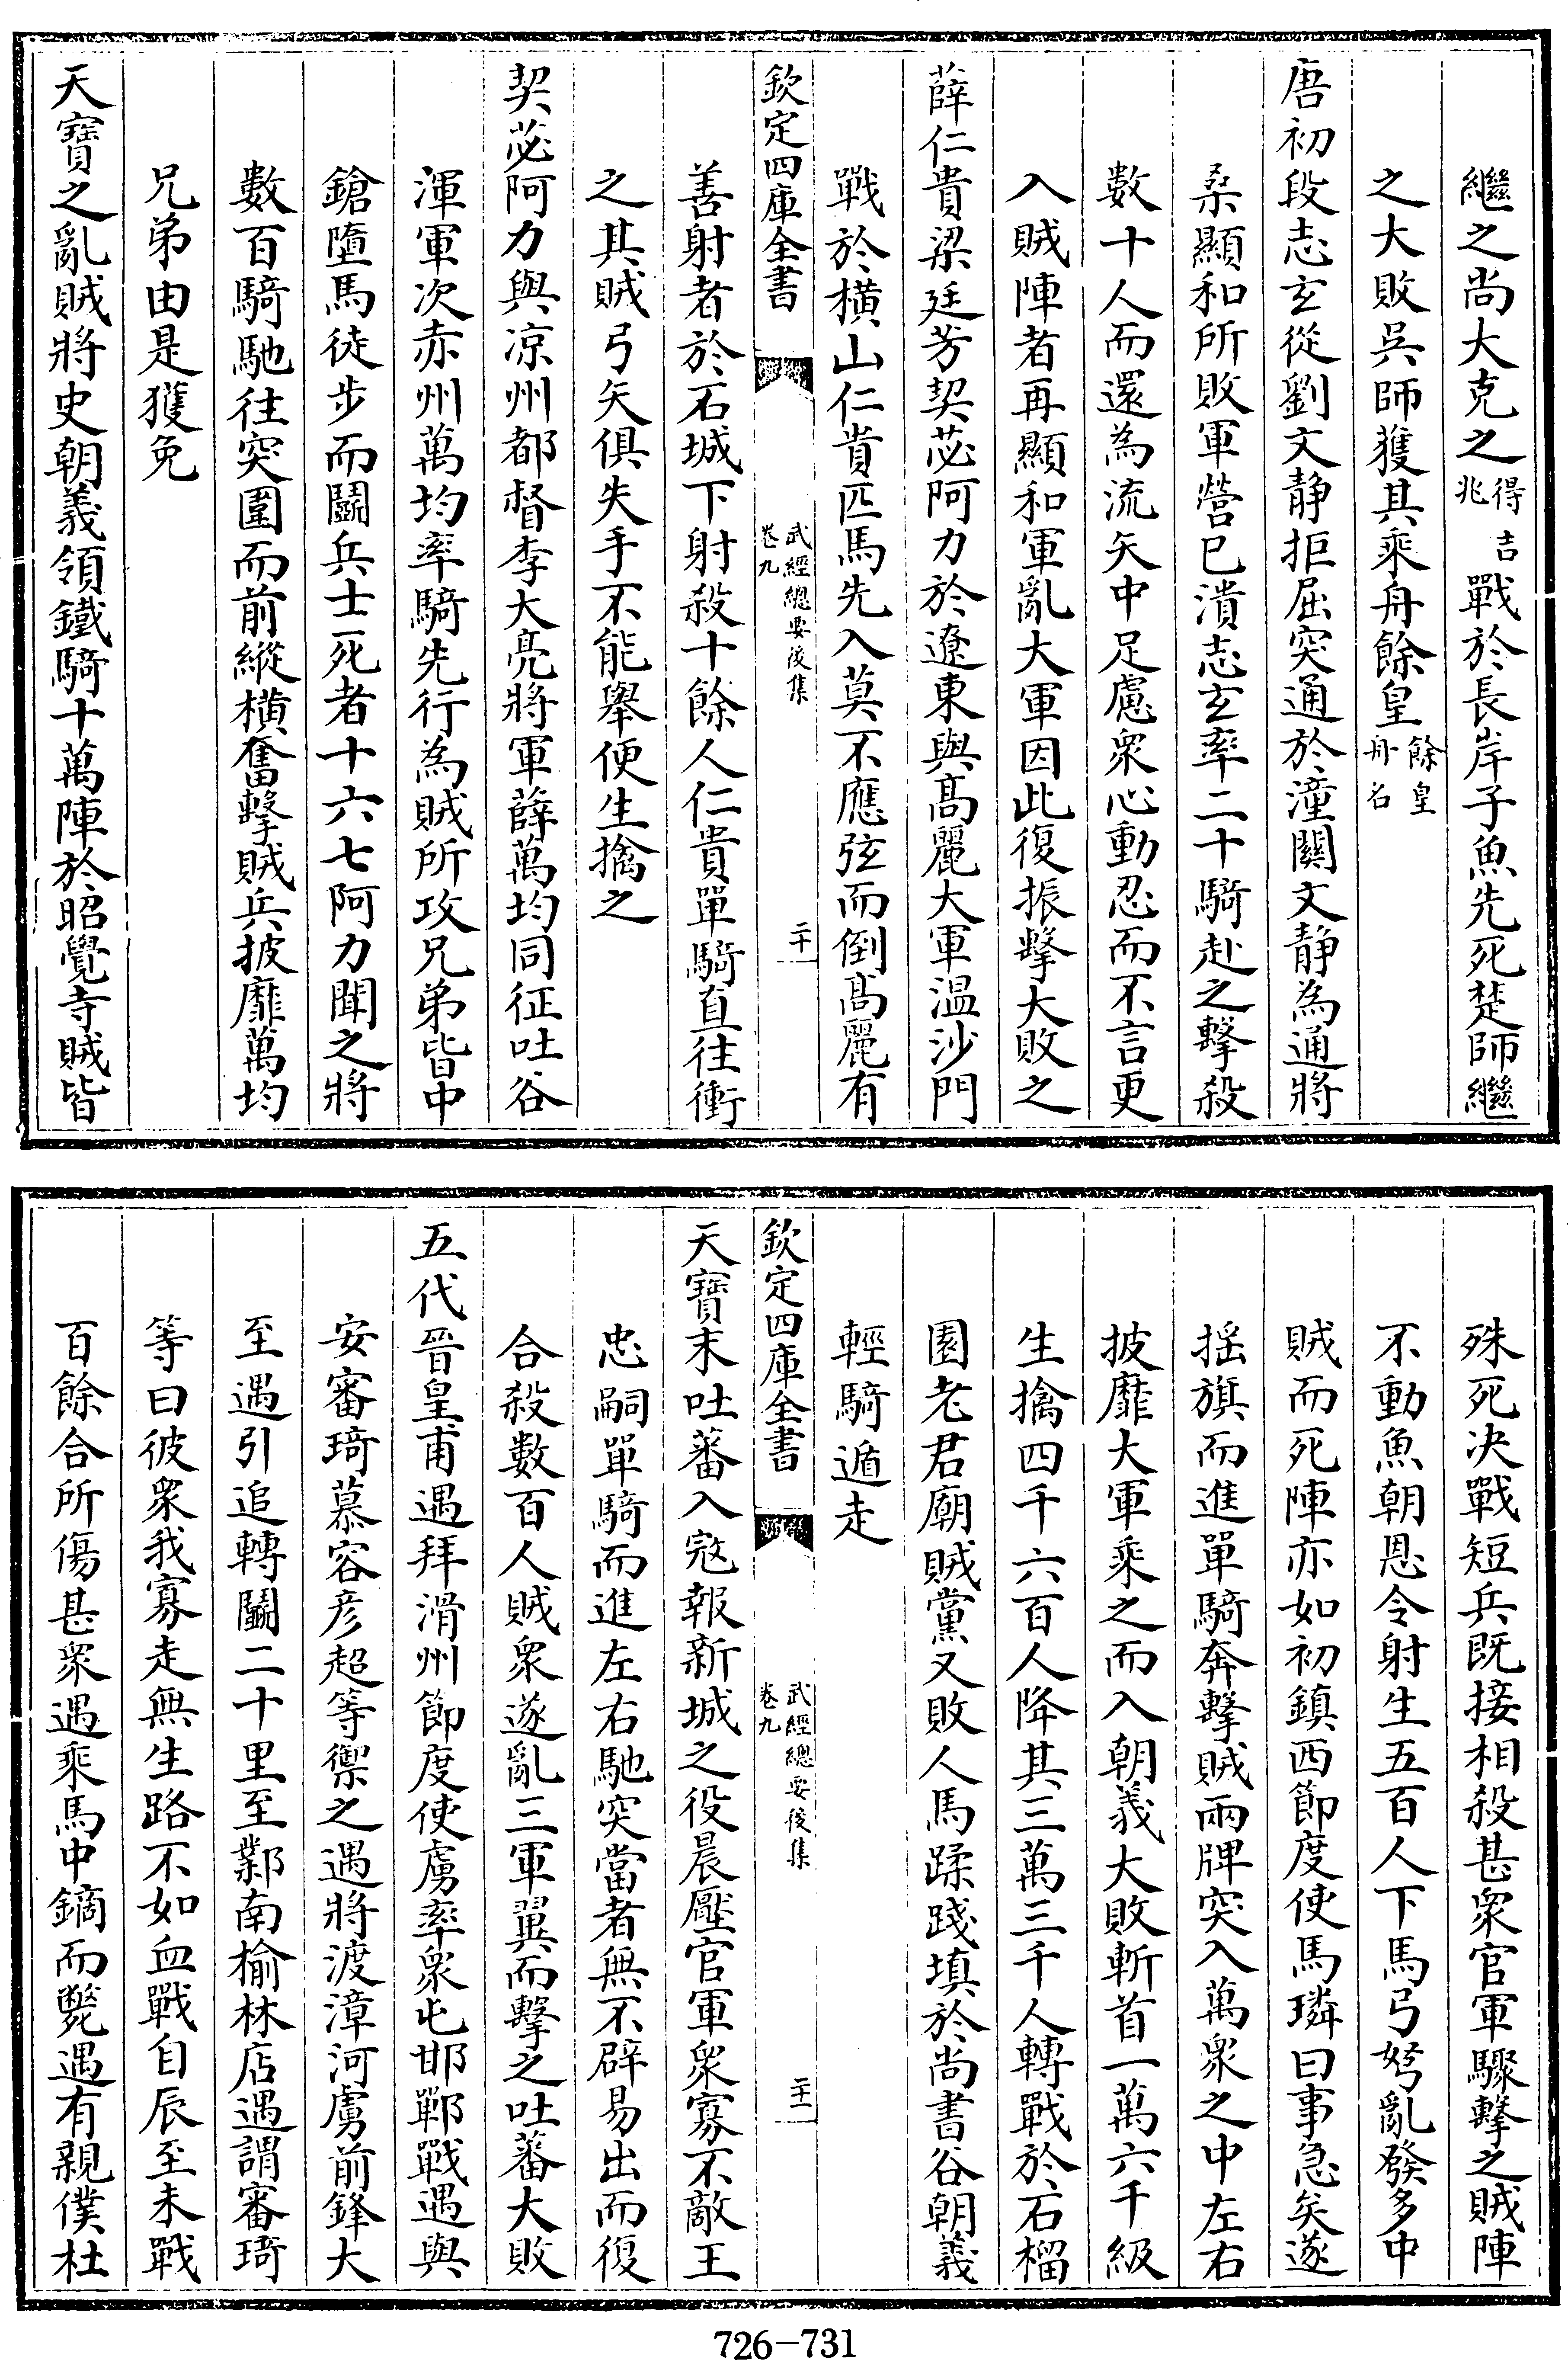 繼之尚大克之得吉兆戰於長岸子魚先死楚師繼
之大敗吳師獲其乘舟餘皇餘皇舟名
唐初段志玄從劉文静拒屈突通於潼關文静為通將
桑顯和所敗軍營已潰志玄率二十騎赴之擊殺
數十人而還為流矢中足慮衆心動忍而不言更
入賊陣者再顯和軍亂大軍因此復振擊大敗之
薛仁貴梁廷芳契苾阿力於遼東與髙麗大軍温沙門
戰於横山仁貴匹馬先入莫不應弦而倒髙麗有
欽定四庫全書
武經總要後集
卷九
二十一
善射者於石城下射殺十餘人仁貴單騎直往衝
之其賊弓矢俱失手不能舉便生擒之
契苾阿力與凉州都督李大亮將軍薛萬均同征吐谷
渾軍次赤州萬均率騎先行為賊所攻兄弟皆中
鎗墮馬徒步而鬭兵士死者十六七阿力聞之將
數百騎馳往突圍而前縱横奮擊賊兵披靡萬均
兄弟由是獲免
天寶之亂賊將史朝義領鐵騎十萬陣於昭覺寺賊皆
殊死决戰短兵既接相殺甚衆官軍驟擊之賊陣
不動魚朝恩令射生五百人下馬弓弩亂發多中
賊而死陣亦如初鎮西節度使馬璘曰事急矣遂
揺旗而進單騎奔擊賊兩牌突入萬衆之中左右
披靡大軍乘之而入朝義大敗斬首一萬六千級
生擒四千六百人降其三萬三千人轉戰於石榴
園老君廟賊黨又敗人馬蹂踐填於尚書谷朝義
輕騎遁走
欽定四庫全書
武經總要後集
卷九
二十二
天寶末吐蕃入寇報新城之役晨壓官軍衆寡不敵王
忠嗣單騎而進左右馳突當者無不辟易出而復
合殺數百人賊衆遂亂三軍翼而擊之吐蕃大敗
五代晉皇甫遇拜滑州節度使虜率衆屯邯鄲戰遇與
安審琦慕容彦超等禦之遇將渡漳河虜前鋒大
至遇引追轉鬭二十里至鄴南榆林店遇謂審琦
等曰彼衆我寡走無生路不如血戰自辰至未戰
百餘合所傷甚衆遇乘馬中鏑而斃遇有親僕杜
726-731